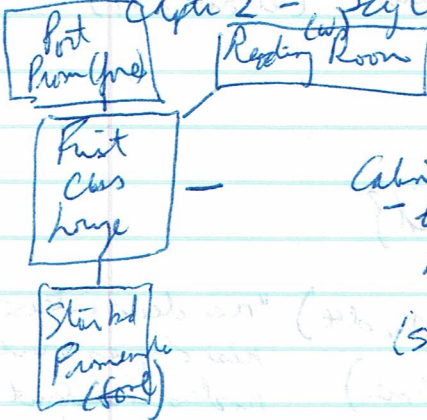 Port
Prom (fore)
Reading (w) Room
First
Class
Lounge
Cabin
Starbd
Promenade
(fore)
(s